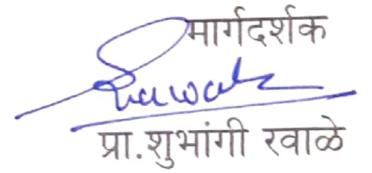 मार्गदर्शक
प्रा.शुभांगी रवाळे